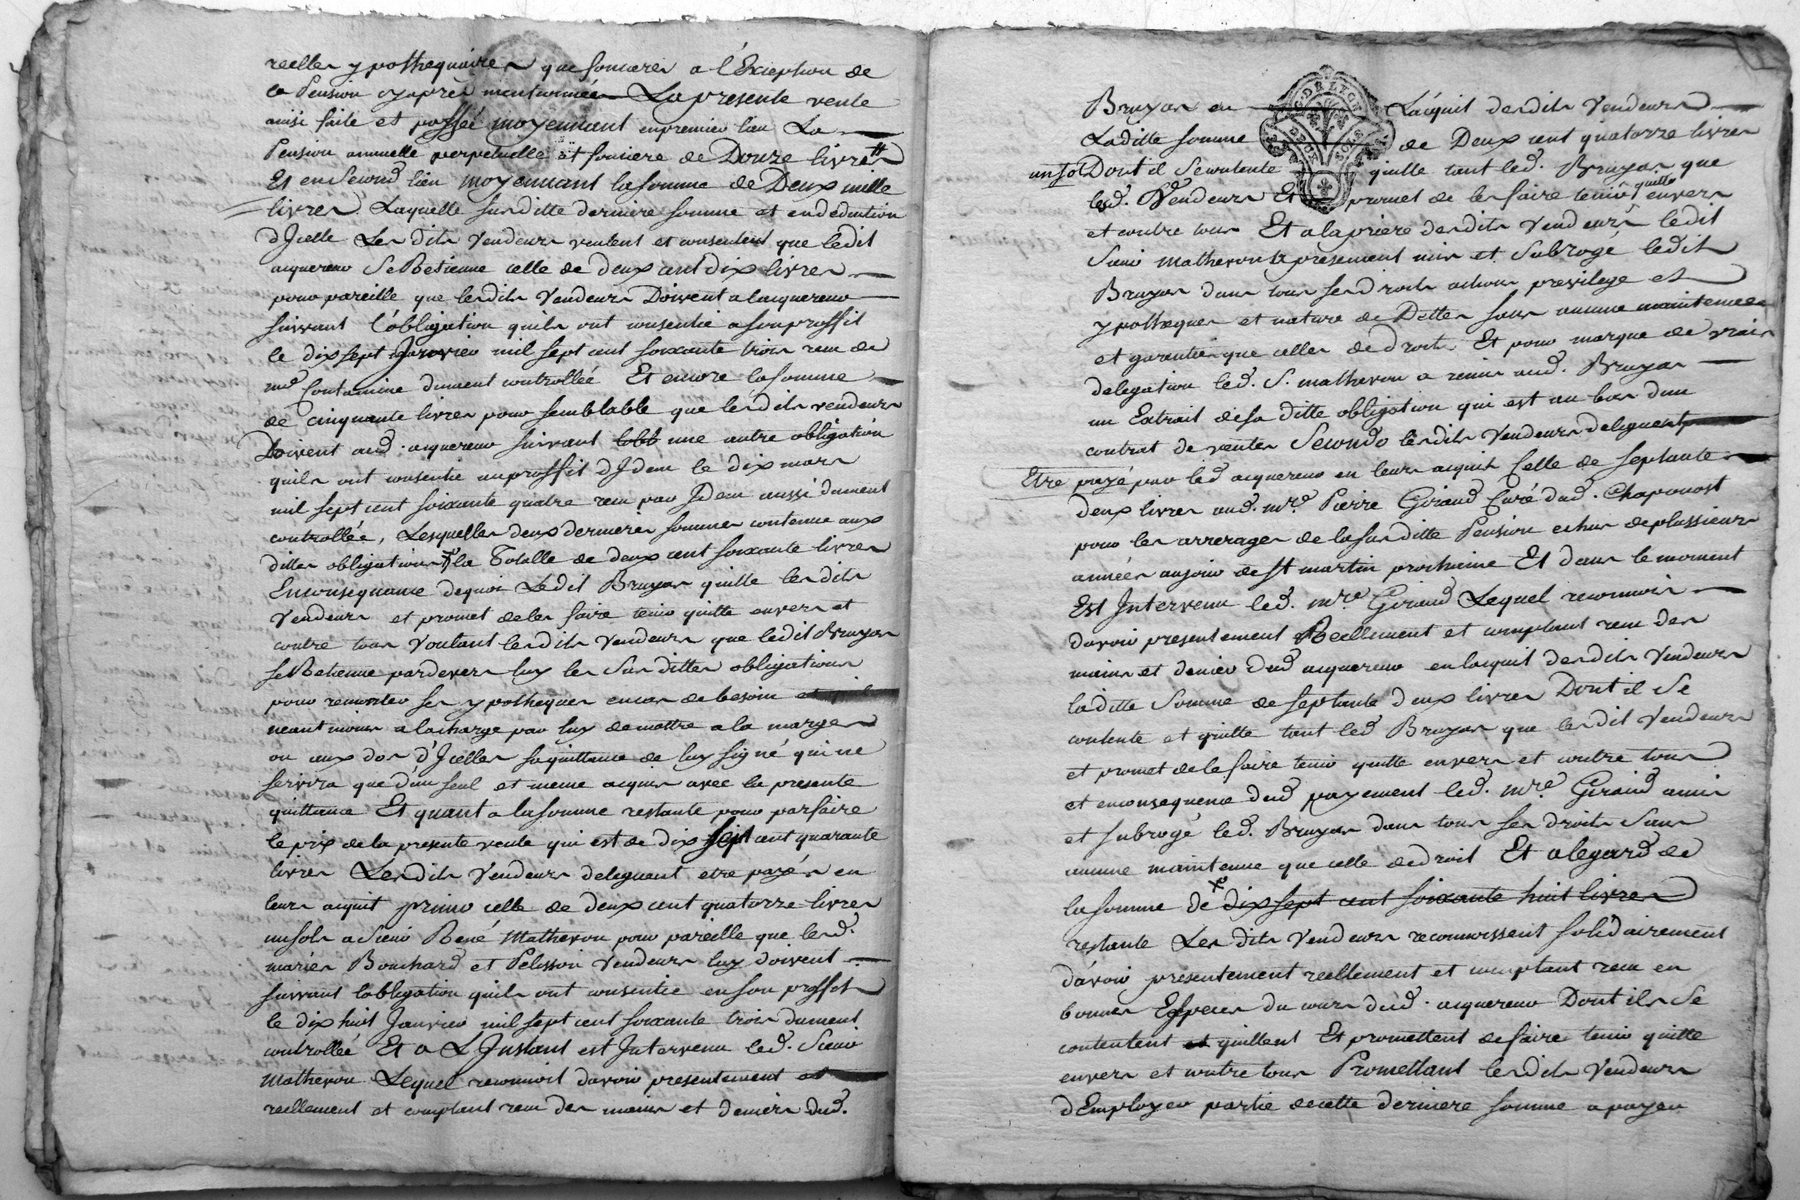 reelles ypothequaires que foncieres a l'Exception de
la Pension cyaprès mentionnée La presente vente
ainsi faite et passée moyennant enpremier lieu La
Pension annuelle perpetuelle et fonciere de Douze livres
Et en Second lieu moyennant la somme de Deux mille
livres Laquelle susditte derniere somme et endeduction
d'Jcelle Lesdits Vendeurs veulent et consentent que ledit
acquereur Se Retienne celle de deux cent dix livres
pour pareille que lesdits Vendeurs Doivent a lacquereur
suivant l'obligation quils ont consentie a son proffit
le dix sept Janvier mil sept cent soixante trois recu de
me Contamine dument controllée Et encore la somme
de cinquante livres pour semblable que lesdits vendeurs
Doivent aud. acquereur suivant une autre obligation
quils ont consentie auproffit dJdem le dix mars
mil sept cent soixante quatre recu par Jdem aussi dument
controllée, Lesquelles deux dernieres sommes contenue aux
dittes obligations la Totalle de deux cent soixante livres
Enconsequance dequoi Ledit Bruyas quitte lesdits
Vendeurs et promet de les faire tenir quitte envers et
contre tous Voulant lesdits Vendeurs que ledit Bruyas
se Retienne pardevers luy les Susdittes obligations
pour remonter ses ypotheques encas de besoin
neant moins a lacharge par luy de mettre a la marge
ou aux dos d'Jcelles sa quittance de luy signé qui ne
servira que d'un seul et meme acquis avec la presente
quittance Et quant a la somme restante pour parfaire
le prix de la presente vente qui est de dix sept cent quarante
livres Lesdits Vendeurs deleguent etre payés en
leurs acquit primo celle de deux cent quatorze livres
un sols a Sieur René Matheron pour pareille que lesd.
mariés Bouchard et Pelisson Vendeurs luy doivent
suivant lobligation quils ont consentie en son proffit
le dix huit Janvier mil sept cent soixante trois dument
controllée Et a L'Jnstant est Jntervenu led. Sieur
Matheron Lequel reconnoit davoir presentement
reellement et comptant recu des mains et deniers dud.
Bruyas en Lacquit desdits Vendeurs
Laditte somme de Deux cent quatorze livres
un sol Dont il Se contente quitte tant led. Bruyas que
lesd. Vendeurs Et promet de les faire tenir quitte envers
et contre tous Et a la priere desdits Vendeurs ledit
Sieur Matheron a presentement mis et Subrogé ledit
Bruyas dans tous ses droits actions previlege et
ypotheques et nature de Dettes sans aucune maintenue
et garantie que celles de droit Et pour marque de vraie
delegation led. S. matheron a remis aud. Bruyas
un Extrait de sa ditte obligation qui est au bas dun
contrat de ventes Secondo lesdits Vendeurs deleguent
Etre payé par led acquereur en leurs acquit Celle de septante
deux livres aud. mre. Pierre Giraud Curé dud. Chaponost
pour les arrerages de la susditte Pension echus de plusieurs
années aujour de St martin prochaine Et dans le moment
Est Jntervenu led. mre Giraud Lequel reconnois
davoir presentement Reellement et comptant recu des
mains et denier dud acquereur en lacquit desdits Vendeurs
laditte Somme de septante deux livres Dont il Se
contente et quitte tant led Bruyas que lesdit Vendeurs
et promet de le faire tenir quitte envers et contre tous
et enconsequence dud payement led. mre Giraud a mis
et subrogé led. Bruyas dans tous ses droits Sans
aucune maintenue que celle de droit Et a legard de
la somme de dix sept cent soixante huit livres
restante Lesdits Vendeurs reconnoissent solidairement
davoir presentement reellement et comptant recu en
bonnes Especes du cours dud. acquereur Dont ils Se
contentent quittent Et promettent de faire tenir quitte
envers et contre tous Promettant lesdits Vendeurs
d'Employer partie de cette derniere somme a payer